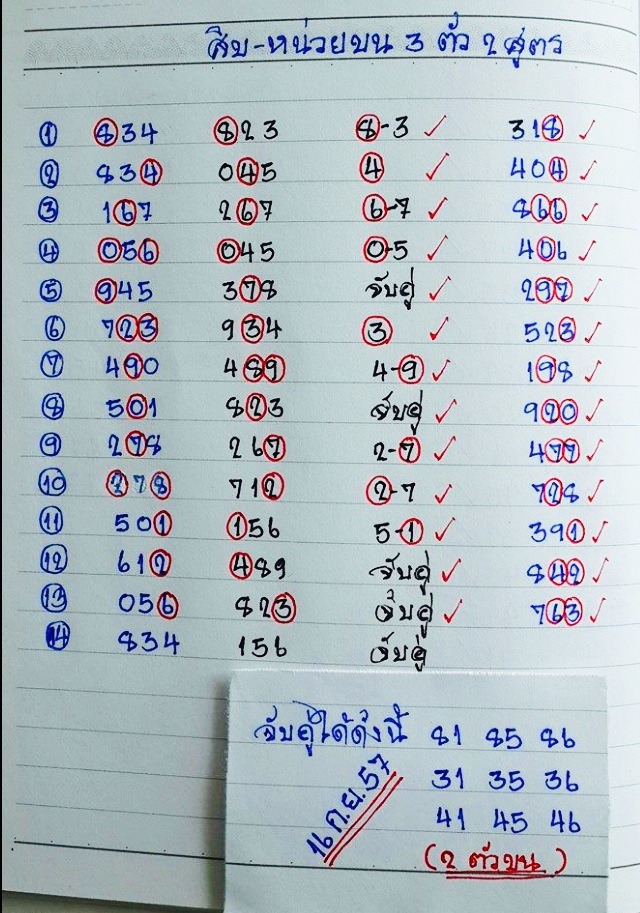 สิบ-หน่วยบน 3 ตัว 2 สูตร
① 834 823 8-3 ✓ 318 ✓
② 834 045 4 ✓ 404 ✓
③ 167 267 6-7 ✓ 866 ✓
④ 056 045 0-5 ✓ 406 ✓
⑤ 945 378 จับคู่ ✓ 297 ✓
⑥ 723 934 3 ✓ 523 ✓
⑦ 490 489 4-9 ✓ 198 ✓
⑧ 501 823 จับคู่ ✓ 920 ✓
⑨ 278 267 2-7 ✓ 477 ✓
⑩ 278 712 2-7 ✓ 728 ✓
⑪ 501 156 5-1 ✓ 391 ✓
⑫ 612 489 จับคู่ ✓ 842 ✓
⑬ 056 823 จับคู่ ✓ 763 ✓
⑭ 834 156 จับคู่
จับคู่ได้ดังนี้ 81 85 86
31 35 36
41 45 46
16 ก.ย. 57
(2 ตัวบน)